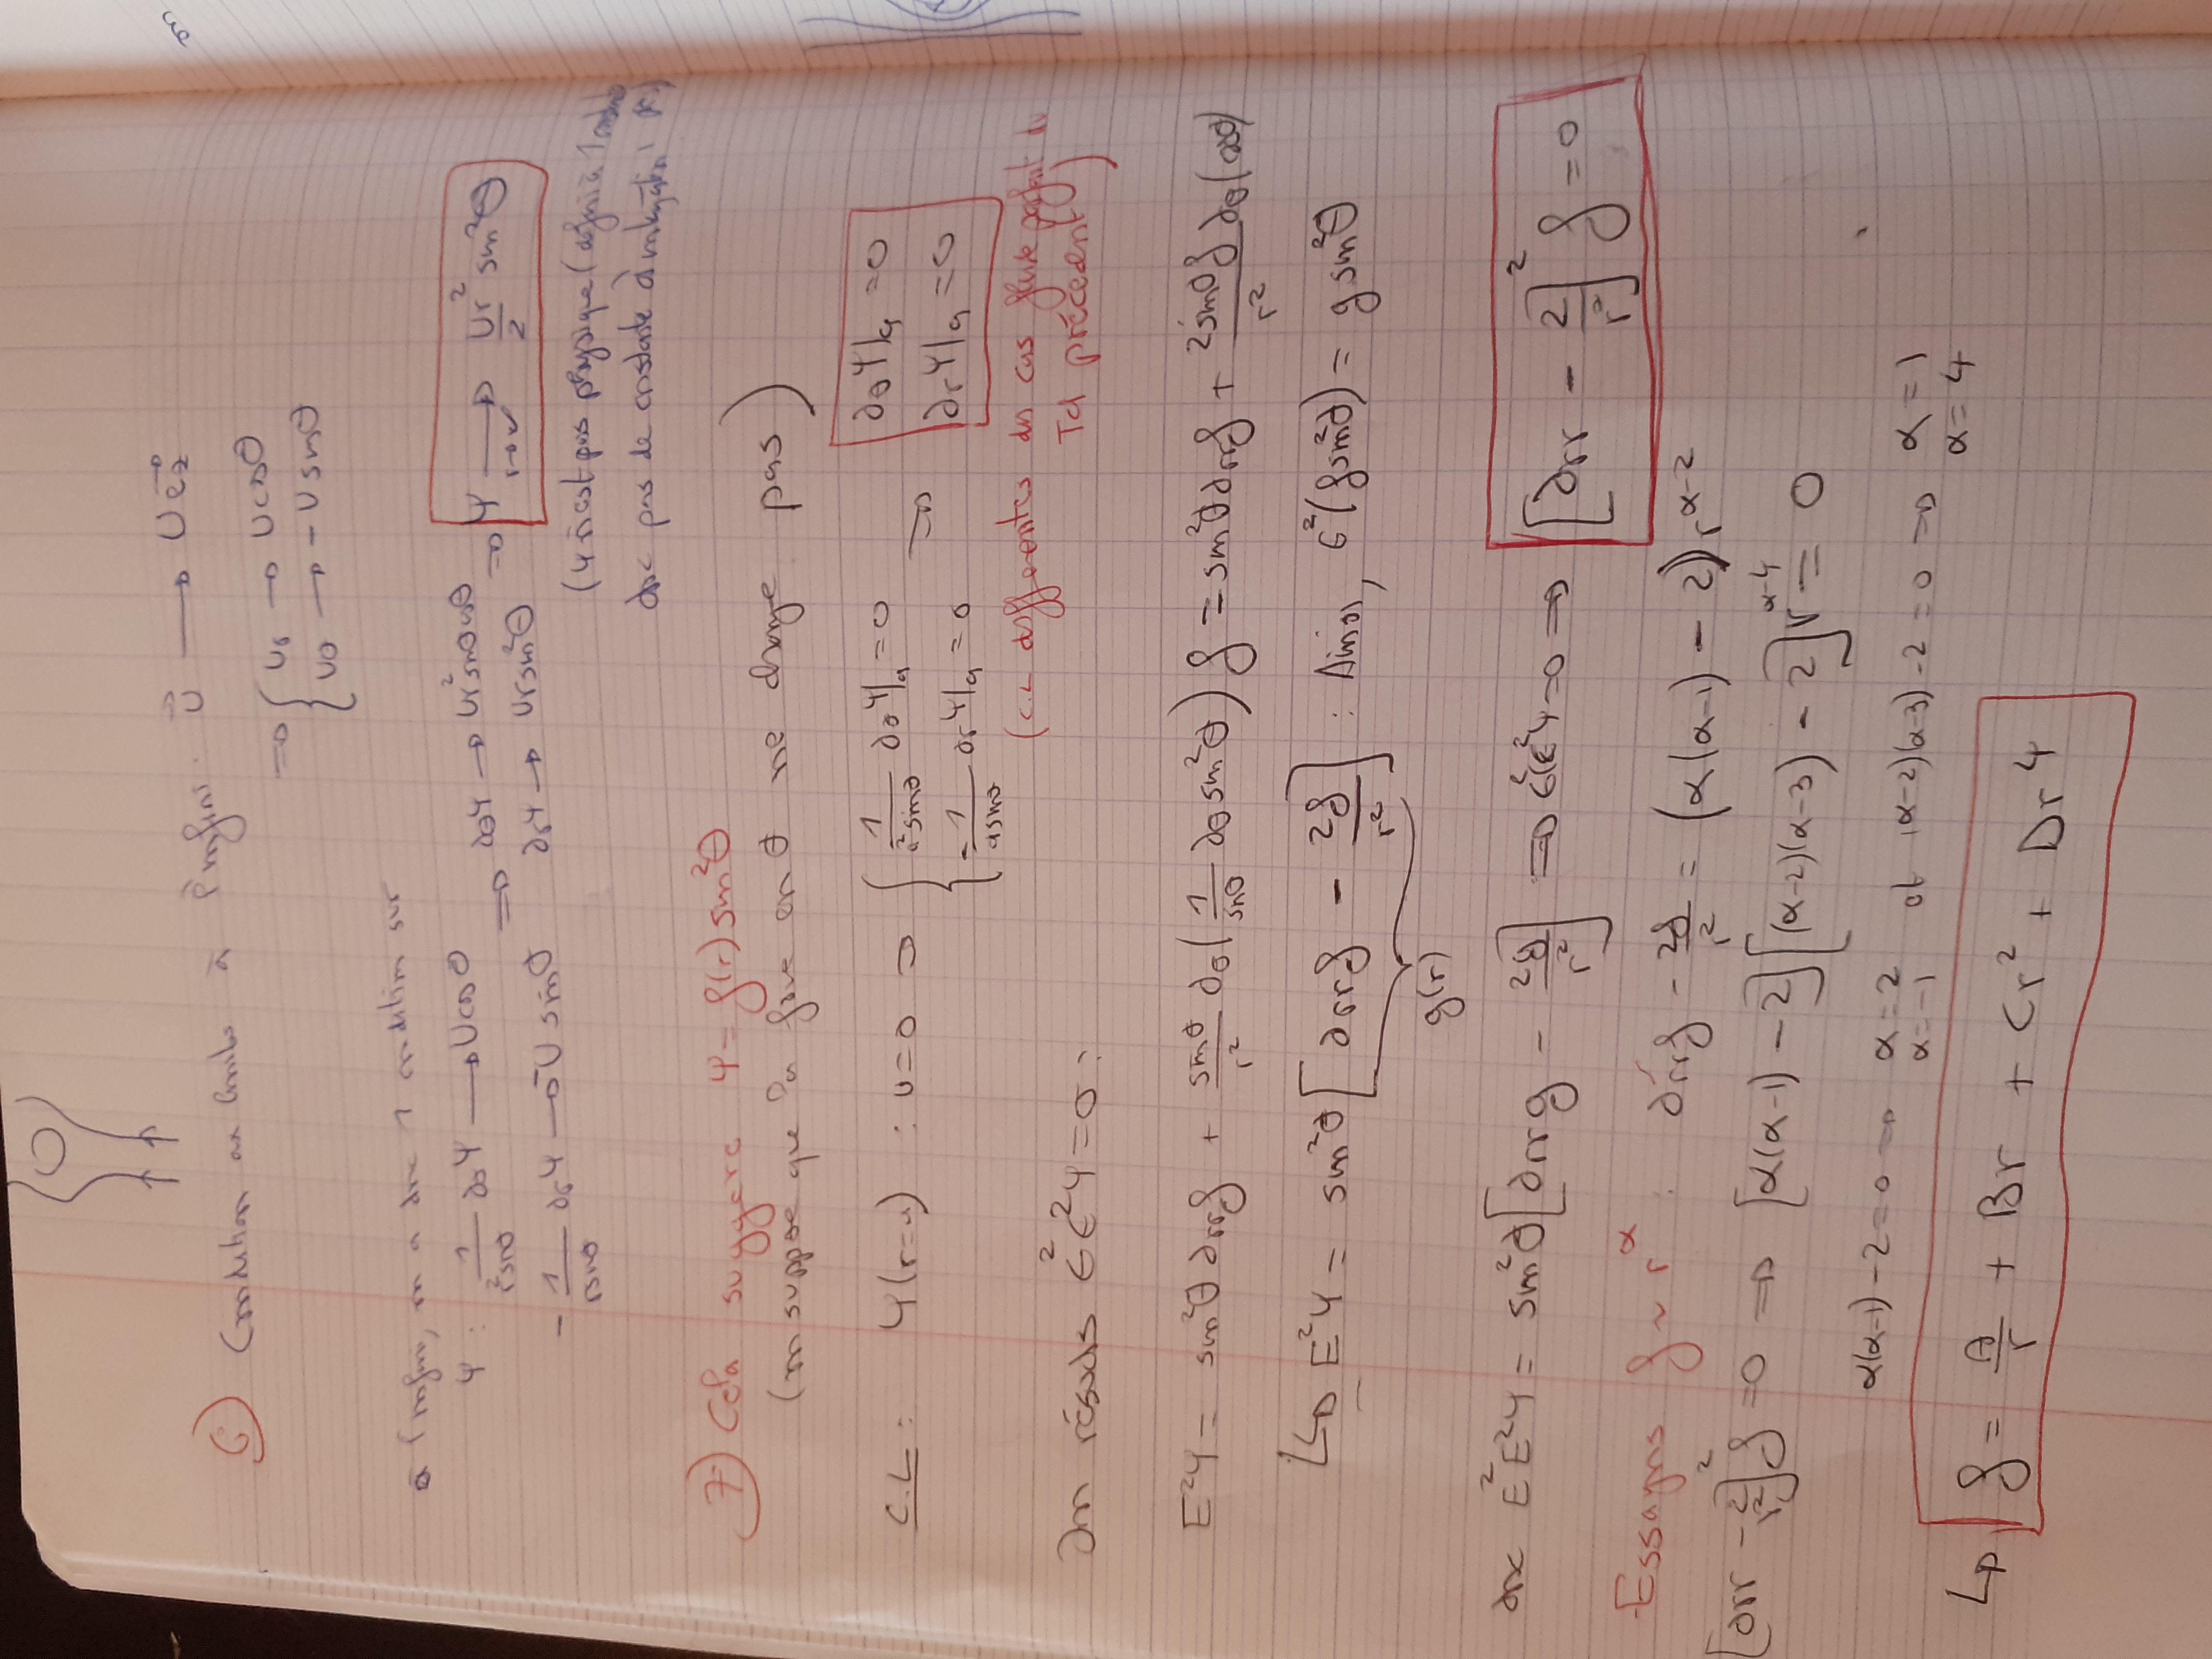 6) Condition aux limites à l'infini : U⃗ → U e⃗z
⇒ { Ur → U cosθ
Uθ → - U sinθ
à l'infini, on a donc 1 condition sur
Ψ : 1/(r² sinθ) ∂θΨ → U cosθ ⇒ ∂θΨ → Ur² sinθ cosθ ⇒ Ψ → (r→∞) Ur²/2 sin²θ
- 1/(r sinθ) ∂rΨ → -U sinθ ∂rΨ → Ur sin²θ
(Ψ n'est pas physique (défini à 1 constante
donc pas de constante d'intégration
7) Cela suggère Ψ = f(r) sin²θ
(on suppose que la forme en θ ne change pas)
C.L : Ψ(r=a) : u=0 ⇒ { 1/(a² sinθ) ∂θΨ|a = 0 ⇒ ∂θΨ|a = 0
- 1/(a sinθ) ∂rΨ|a = 0 ∂rΨ|a = 0
(C.L différentes du cas fluide parfait du
Td précédent)
On résouds E²E²Ψ = 0 :
E²Ψ = sin²θ ∂rrf + sinθ/r² ∂θ(1/sinθ ∂θ sin²θ) f = sin²θ ∂rrf + 2sinθ f/r² ∂θ(cosθ)
↳ E²Ψ = sin²θ [∂rrf - 2f/r²] : Ainsi, E²(f sin²θ) = g sin²θ
g(r)
donc E²E²Ψ = sin²θ [∂rrg - 2g/r²] ⇒ E²E²Ψ = 0 ⇒ [∂rr - 2/r²]² f = 0
Essayons f ~ r^α : ∂rrf - 2f/r² = (α(α-1) - 2) r^(α-2)
[∂rr - 2/r²]² f = 0 ⇒ [α(α-1) - 2][(α-2)(α-3) - 2] r^(α-4) = 0
α(α-1) - 2 = 0 ⇒ α = 2 et (α-2)(α-3) - 2 = 0 ⇒ α = 1
α = -1 α = 4
↳ f = A/r + Br + Cr² + Dr⁴